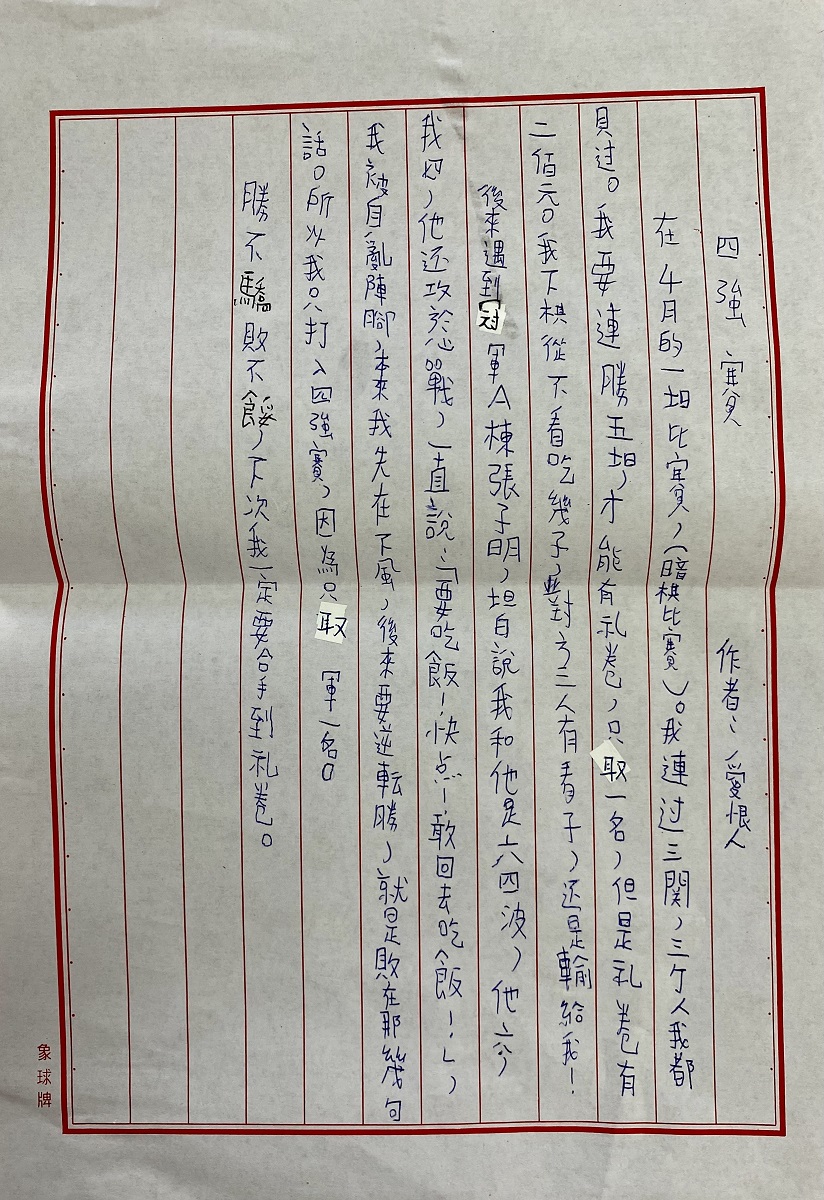 四強賽 作者:愛恨人
在4月的一坦比賽,(暗棋比賽)。我連过三関,三个人我都
貝过。我要連勝五坦,才能有礼卷,只取一名,但是礼卷有
二佰元。我下棋從不看吃幾子,對方三人有看子,还是輸給我!
後來遇到对軍A棟張子明,坦白說我和他是六四波,他六
我四,他还攻於心戰,一直說:「要吃飯!快点!敢回去吃飯!」,
我被自亂陣腳,本來我先在下風,後來要逆転勝,就是敗在那幾句
話。所以我只打入四強賽,因為只取軍一名。
勝不驕敗不餒,下次我一定要合手到礼卷。
象球牌